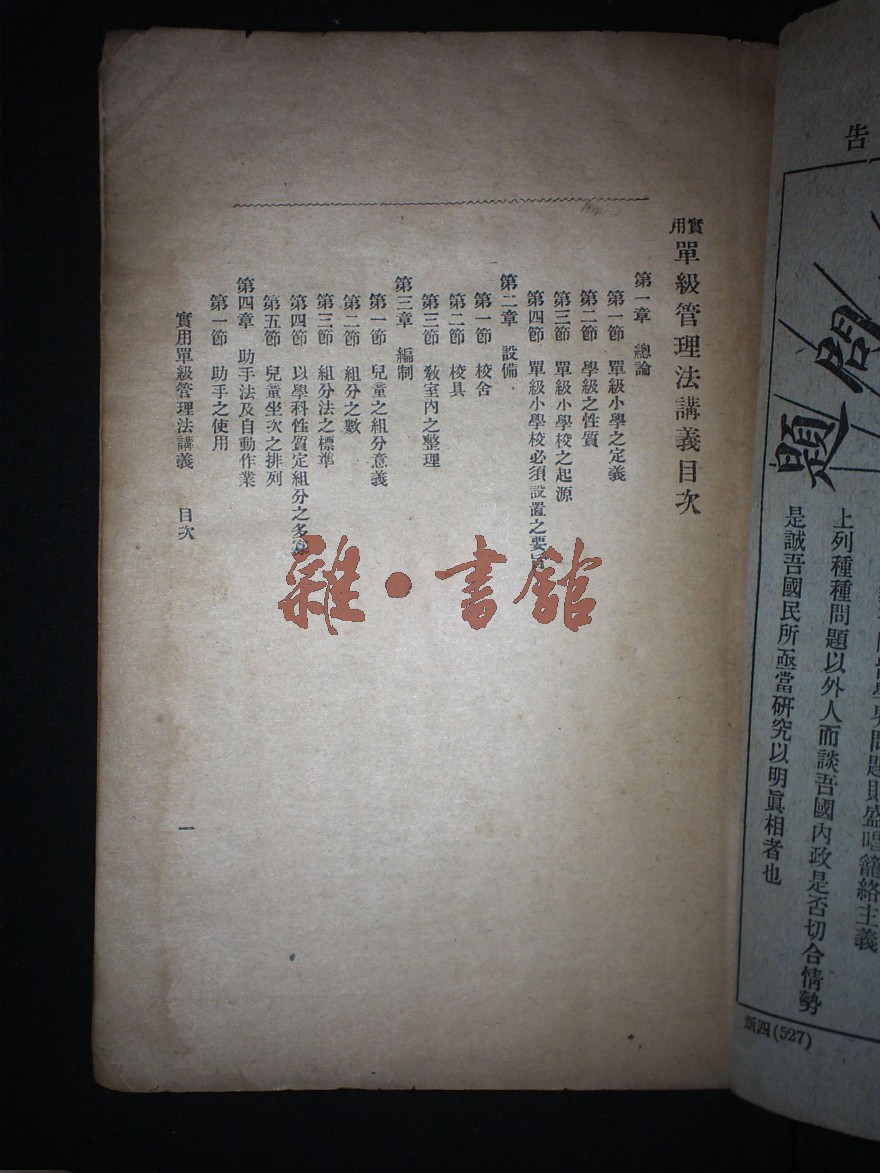 實用單級管理法講義目次
第一章　總論
第一節　單級小學之定義
第二節　學級之性質
第三節　單級小學校之起源
第四節　單級小學校必須設置之要旨
第二章　設備
第一節　校舍
第二節　校具
第三節　敎室內之整理
第三章　編制
第一節　兒童之組分意義
第二節　組分之數
第三節　組分法之標準
第四節　以學科性質定組分之多寡
第五節　兒童坐次之排列
第四章　助手法及自動作業
第一節　助手之使用
實用單級管理法講義　目次
一
雜·書館
告
問題
問題則盛唱籠絡主義
上列種種問題以外人而談吾國內政是否切合情勢
是誠吾國民所亟當硏究以明眞相者也
新四(527)